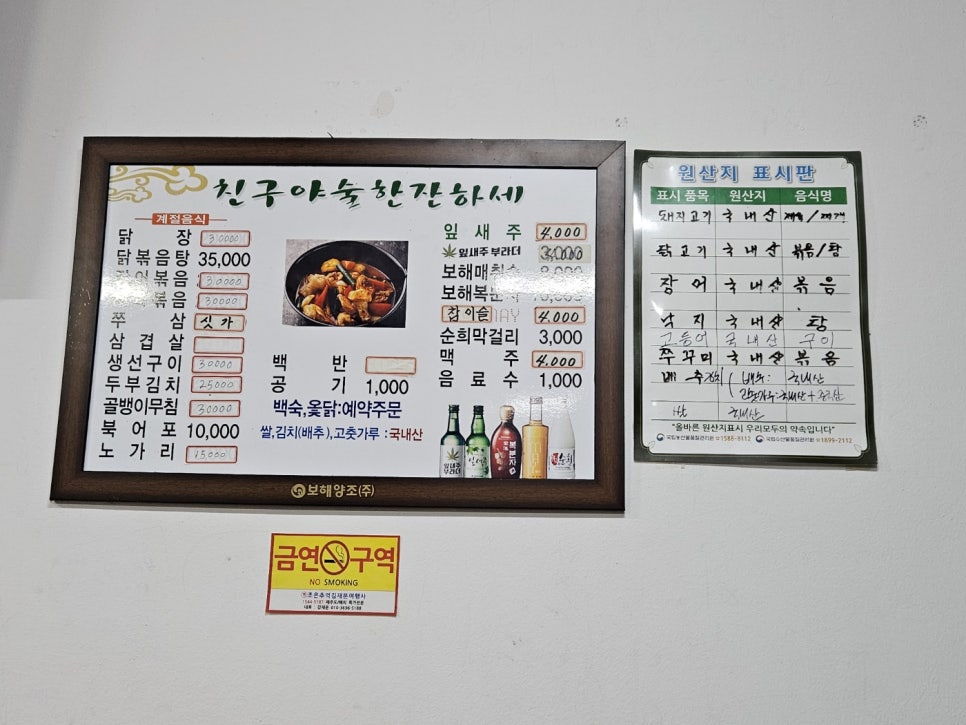 친구야 술 한잔 하세
계절음식
닭 장 30000
닭볶음탕 35,000
볶음 30000
볶음 30000
쭈 삼 싯가
삼겹살
생선구이 30000
두부김치 25000
골뱅이무침 30000
북어포 10,000
노가리 15000
백 반
공 기 1,000
백숙,옻닭:예약주문
쌀,김치(배추),고춧가루:국내산
잎새주 4,000
잎새주 부라더
보해매취순
보해복분자
참이슬 4,000
순희막걸리 3,000
맥 주 4,000
음료수 1,000
잎새주
부라더
복분자
순희
보해양조(주)
원산지 표시판
표시 품목 원산지 음식명
돼지고기 국내산
닭고기 국내산 볶음/탕
장어 국내산 볶음
낙지 국내산 탕
고등어 국내산 구이
쭈꾸미 국내산 볶음
배추김치 (배추: 국내산
국내산
"올바른 원산지표시 우리모두의 약속입니다"
국립농산물품질관리원 1588-8112 국립수산물품질관리원 1899-2112
금연구역
NO SMOKING